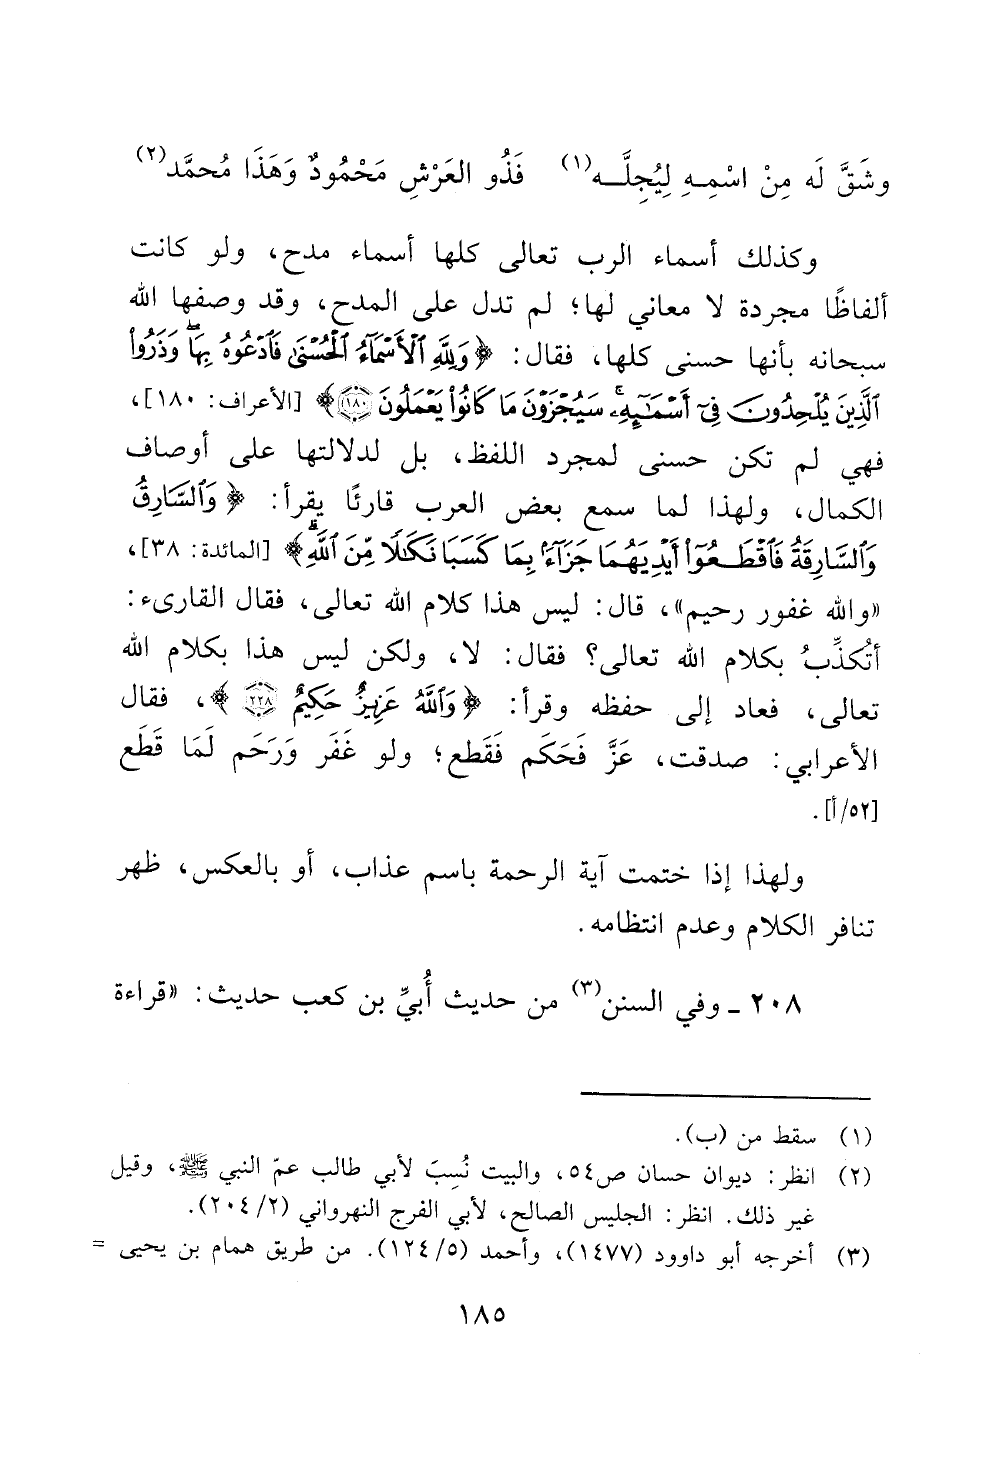 وشَقَّ لَه مِنْ اسْمِهِ لِيُجِلَّـه(١) فَذُو العَرْشِ مَحْمُودٌ وَهَذَا مُحمَّد(٢)
وكذلك أسماء الرب تعالى كلها أسماء مدح، ولو كانت
ألفاظًا مجردة لا معاني لها؛ لم تدل على المدح، وقد وصفها الله
سبحانه بأنها حسنى كلها، فقال: ﴿وَلِلَّهِ ٱلْأَسْمَآءُ ٱلْحُسْنَىٰ فَٱدْعُوهُ بِهَا ۖ وَذَرُوا۟
ٱلَّذِينَ يُلْحِدُونَ فِىٓ أَسْمَـٰٓئِهِۦ ۚ سَيُجْزَوْنَ مَا كَانُوا۟ يَعْمَلُونَ ١٨٠﴾ [الأعراف: ١٨٠]،
فهي لم تكن حسنى لمجرد اللفظ، بل لدلالتها على أوصاف
الكمال، ولهذا لما سمع بعض العرب قارئًا يقرأ: ﴿وَٱلسَّارِقُ
وَٱلسَّارِقَةُ فَٱقْطَعُوٓا۟ أَيْدِيَهُمَا جَزَآءًۢ بِمَا كَسَبَا نَكَـٰلًا مِّنَ ٱللَّهِ ۗ﴾ [المائدة: ٣٨]،
«والله غفور رحيم»، قال: ليس هذا كلام الله تعالى، فقال القارىء:
أتُكذِّبُ بكلام الله تعالى؟ فقال: لا، ولكن ليس هذا بكلام الله
تعالى، فعاد إلى حفظه وقرأ: ﴿وَٱللَّهُ عَزِيزٌ حَكِيمٌ ٢٢٨﴾، فقال
الأعرابي: صدقت، عَزَّ فَحَكَم فَقَطع؛ ولو غَفَر وَرَحَم لَمَا قَطَع
[٥٢/أ].
ولهذا إذا ختمت آية الرحمة باسم عذاب، أو بالعكس، ظهر
تنافر الكلام وعدم انتظامه.
٢٠٨ ـ وفي السنن(٣) من حديث أُبيِّ بن كعب حديث: «قراءة
(١) سقط من (ب).
(٢) انظر: ديوان حسان ص٥٤، والبيت نُسِبَ لأبي طالب عمّ النبي ﷺ، وقيل
غير ذلك. انظر: الجليس الصالح، لأبي الفرج النهرواني (٢/ ٢٠٤).
(٣) أخرجه أبو داوود (١٤٧٧)، وأحمد (٥/ ١٢٤). من طريق همام بن يحيى =
١٨٥